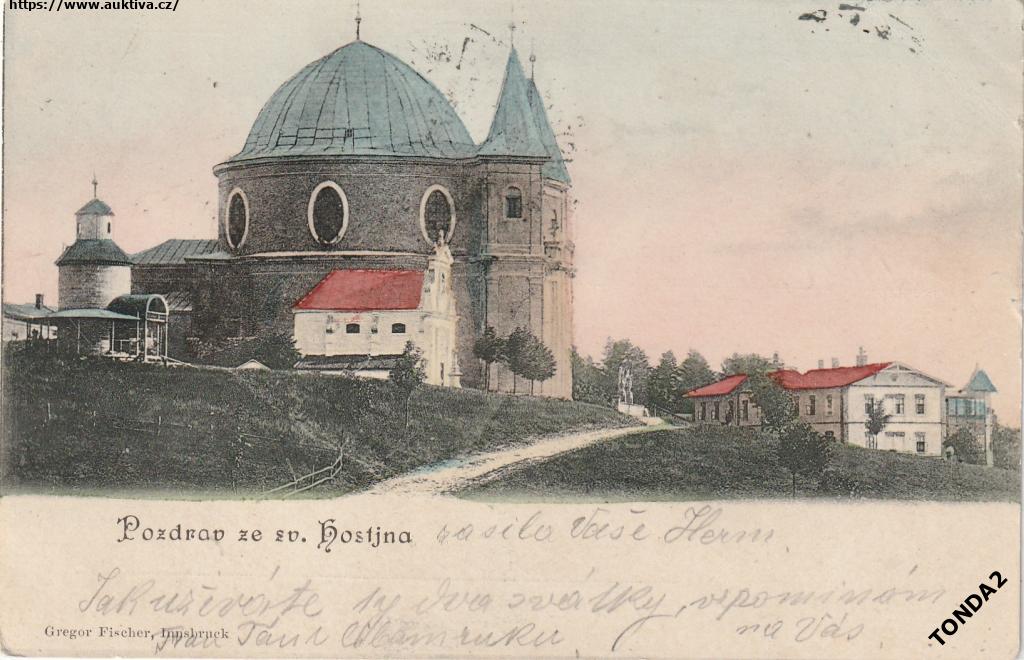 https://www.auktiva.cz/
Pozdrav ze sv. Hostjna zasíla Vaše Herm.
Jak užíváte ty dva svátky, vzpomínám
na Vás
Gregor Fischer, Innsbruck
TONDA2